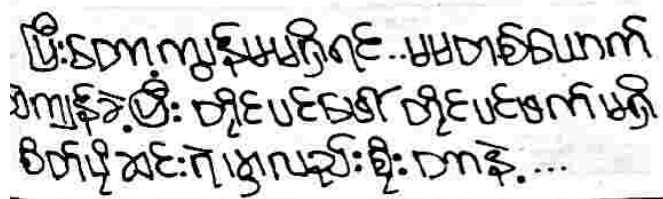 ပြီးတော့ကျွန်မမရှိရင်..မမတစ်ယောက်
ဝဲကျန်ခဲ့ပြီး တိုင်ပင်ဖော် တိုင်ပင်ဖက် မရှိ
စိတ်ဖိုဆင်းရဲမှာလည်းစိုး တာနဲ့....